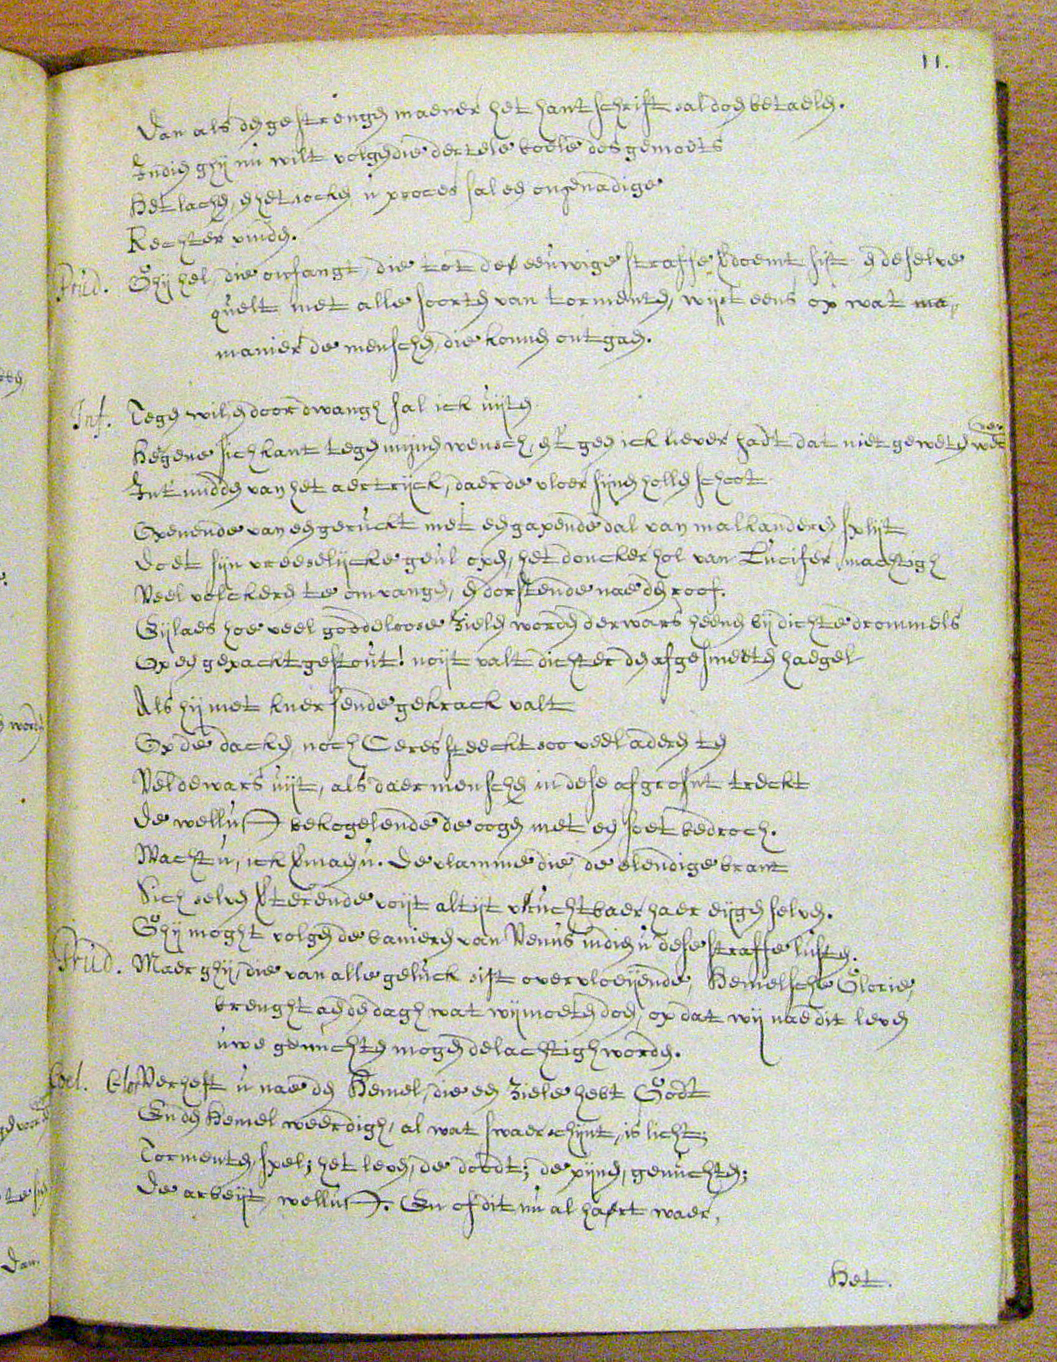 11.
Dan als den gestrengen maener het hantschrift sal doen betaelen.
Indien ghij nu wilt volgen die dertele boele des gemoets
Het lachen, en het jocken u proces sal een ongenadige
Rechter vinden.
Prud. Ghij hel, die omfangt, die tot de eeuwige straffe verdoemt sijt en deselve
quelt met alle soorten van tormenten, wijst eens op wat
manier de menschen, die konnen ontgaen.
Inf. Tegen wil, en door dwangh sal ick uijten
Hetgene sich kant tegen mijnen wensch, en 't geen ick liever hadt dat niet geweten
Int midden van het aertrijck, daer de vloer sijnen hollen schoot
Openende van een geruckt met een gapende dal van malkanderen splijt
Doet sijn vreeselijcke geul open, het doncker hol van Lucifer, machtigh
Veel volckeren te omvangen, en dorstende nae den roof.
Eijlaes hoe veel goddeloose zielen worden derwars heenen bij dichte drommels
Op een gepackt gestout! noijt valt dichter den afgesmeten haegel
Als hij met knersende gekrack valt
Op de dacken noch Ceres steeckt soo veel aderen ten
Veldewars uijt, als daer menschen in dese afgront treckt
De wellust bekogelende de oogen met een soet bedroch.
Wacht u, ick vermaen u. De vlamme die, de elendige brant
Sich selven verterende voijt altijt vruchtbaer haer eijgen selven.
Ghij moght volgen de banieren van Venus indien u dese straffe lusten.
Prud. Maer ghij, die van alle geluck sijt overvloeijende, Hemelsche Glorie,
brenght aen den dagh wat wij moeten doen, op dat wij nae dit leven
uwe genuchten mogen delachtigh worden.
Coel. Glor Verheft u nae den Hemel, die een ziele hebt Godt
En den Hemel weerdigh, al wat swaer schijnt, is licht;
Tormenten, spel; het leven, de doodt; de pijnen, genuchten;
De arbeijt, wellust. En of dit nu al hart waer,
Het.